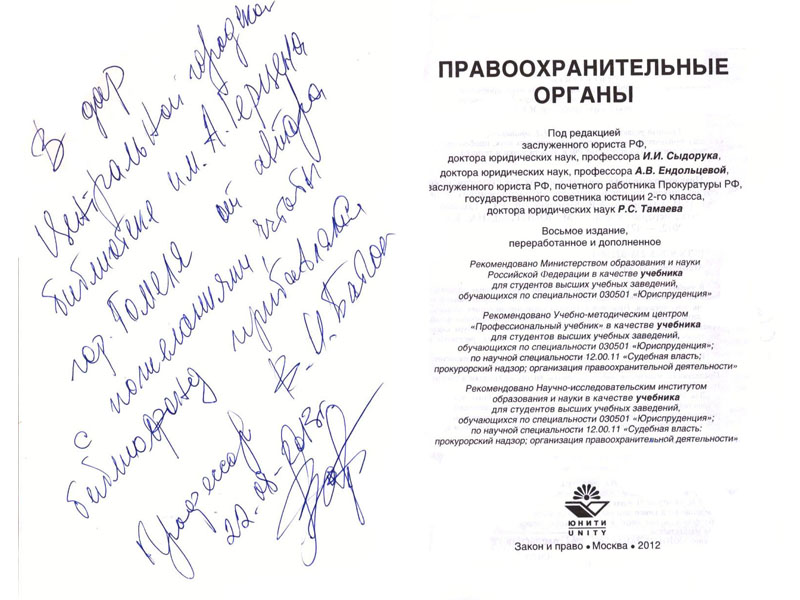 В дар
Центральной городской
библиотеке им. А. Герцена
гор. Гомеля от автора
с пожеланиями чтобы
библиофонд прибавлялся
Профессор К. И. Батов
22-08-2013г
ПРАВООХРАНИТЕЛЬНЫЕ
ОРГАНЫ
Под редакцией
заслуженного юриста РФ,
доктора юридических наук, профессора И.И. Сыдорука,
доктора юридических наук, профессора А.В. Ендольцевой,
заслуженного юриста РФ, почетного работника Прокуратуры РФ,
государственного советника юстиции 2-го класса,
доктора юридических наук Р.С. Тамаева
Восьмое издание,
переработанное и дополненное
Рекомендовано Министерством образования и науки
Российской Федерации в качестве учебника
для студентов высших учебных заведений,
обучающихся по специальности 030501 «Юриспруденция»
Рекомендовано Учебно-методическим центром
«Профессиональный учебник» в качестве учебника
для студентов высших учебных заведений,
обучающихся по специальности 030501 «Юриспруденция»;
по научной специальности 12.00.11 «Судебная власть;
прокурорский надзор; организация правоохранительной деятельности»
Рекомендовано Научно-исследовательским институтом
образования и науки в качестве учебника
для студентов высших учебных заведений,
обучающихся по специальности 030501 «Юриспруденция»;
по научной специальности 12.00.11 «Судебная власть:
прокурорский надзор; организация правоохранительной деятельности»
ЮНИТИ
UNITY
Закон и право • Москва • 2012